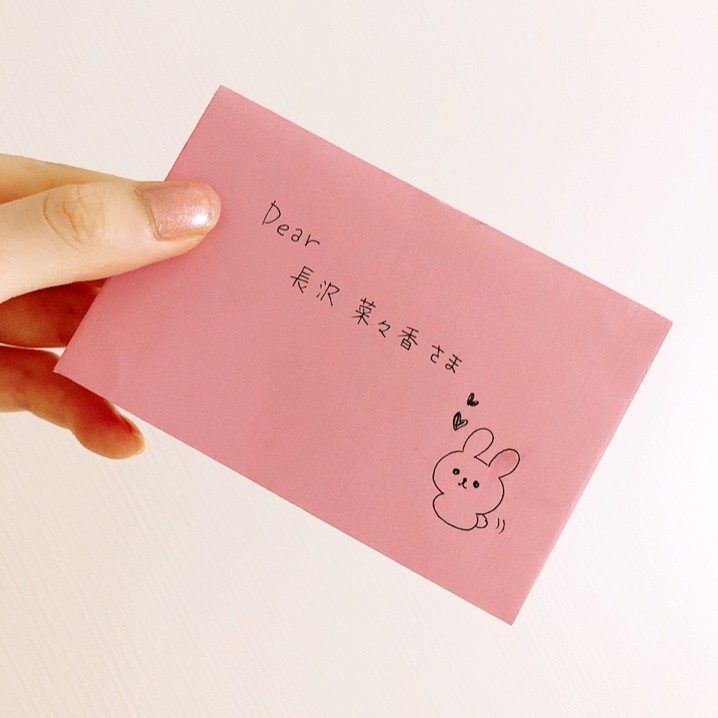 Dear
長沢 菜々香 さま